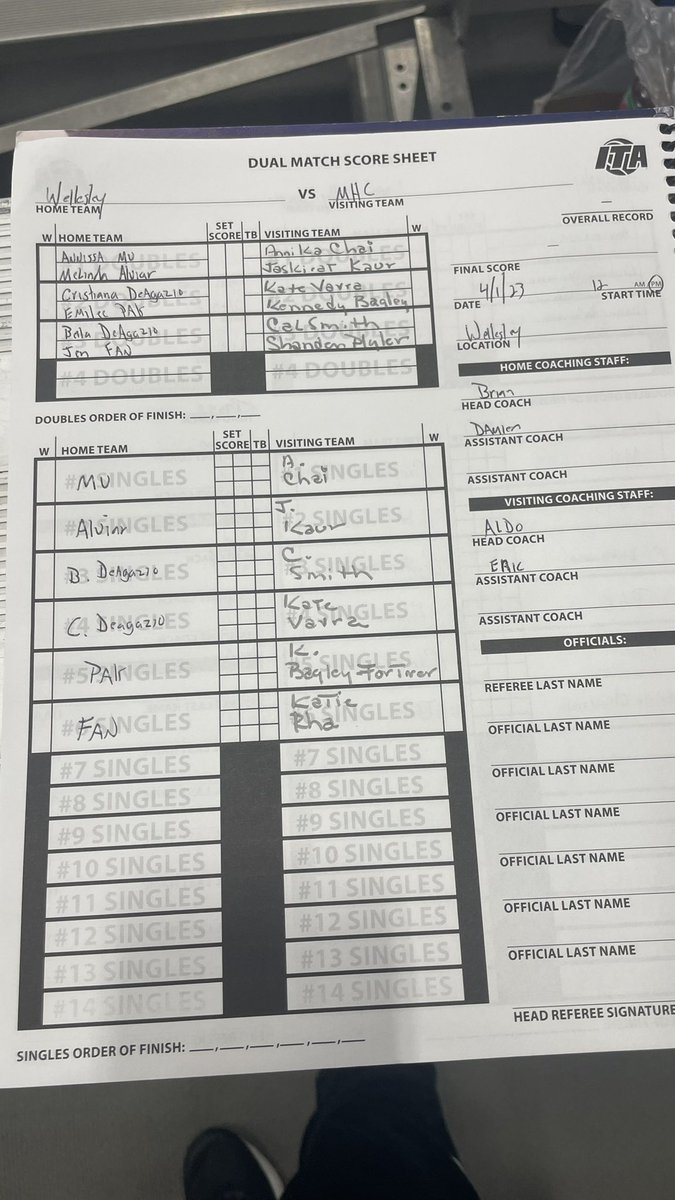 DUAL MATCH SCORE SHEET
ITA
Wellesley VS MHC
HOME TEAM VISITING TEAM
OVERALL RECORD
W HOME TEAM SET SCORE TB VISITING TEAM W
ANNISSA MU Annika Chai
Melinda Alviar Jaskirat Kaur
Cristiana DeAgazio Kate Varra
Emilee PAK Kennedy Bagley
Bela DeAgazio Cal Smith
Jen FAN
#4 DOUBLES #4 DOUBLES
FINAL SCORE
4/1/23 12 AM/PM
DATE START TIME
Wellesley
LOCATION
HOME COACHING STAFF:
HEAD COACH
DAMIEN
ASSISTANT COACH
ASSISTANT COACH
VISITING COACHING STAFF:
ALDO
HEAD COACH
ERIC
ASSISTANT COACH
ASSISTANT COACH
OFFICIALS:
REFEREE LAST NAME
OFFICIAL LAST NAME
OFFICIAL LAST NAME
OFFICIAL LAST NAME
OFFICIAL LAST NAME
OFFICIAL LAST NAME
OFFICIAL LAST NAME
HEAD REFEREE SIGNATURE
DOUBLES ORDER OF FINISH: ___,___,___
W HOME TEAM SET SCORE TB VISITING TEAM W
MU A. Chai
Alviar J. Kaur
B. DeAgazio C. Smith
C. Deagazio Kate Varra
PAK K. Bagley-Fortner
FAN Katie Rha
#7 SINGLES #7 SINGLES
#8 SINGLES #8 SINGLES
#9 SINGLES #9 SINGLES
#10 SINGLES #10 SINGLES
#11 SINGLES #11 SINGLES
#12 SINGLES #12 SINGLES
#13 SINGLES #13 SINGLES
#14 SINGLES #14 SINGLES
SINGLES ORDER OF FINISH: ___,___,___,___,___,___